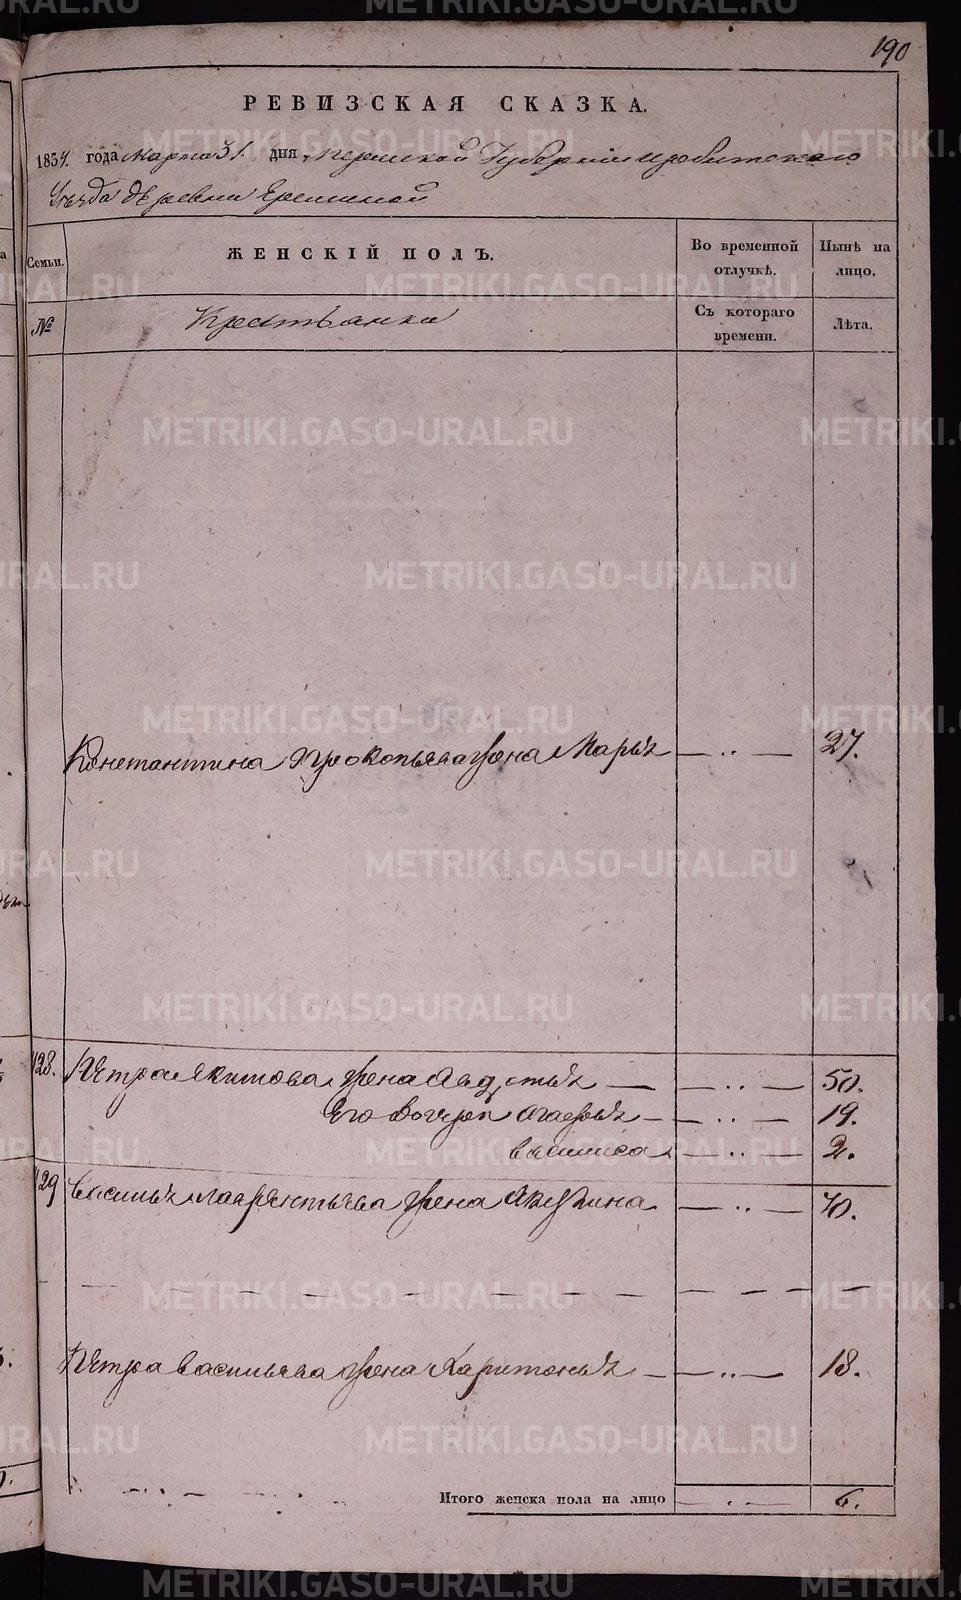 190
РЕВИЗСКАЯ СКАЗКА.
1834. года Марта 31. дня Пермской Губернии Ирбитского
Уѣзда деревни Ерешиной
Семьи.
ЖЕНСКІЙ ПОЛЪ.
Во временной отлучкѣ.
Нынѣ на лицо.
№
Крестьянки
Съ котораго времени.
Лѣта.
Константина Прокопьева жена Марья — .. — 27.
128. Петра Якимова жена Авдотья — .. — 50.
Его дочери Агафья — .. — 19.
Василиса — .. — 2.
129 Василья Лаврентьева жена Акулина — .. — 40.
Петра Васильева жена Харитонья — .. — 18.
Итого женска пола на лицо — .. — 6.
METRIKI.GASO-URAL.RU